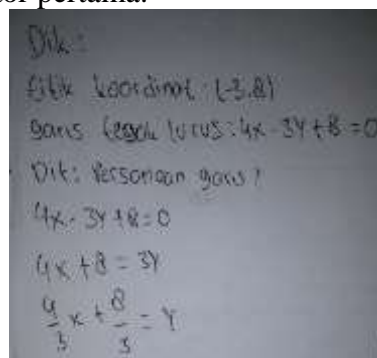 Dik:
titik koordinat: (-3,8)
garis tegak lurus: 4x - 3y + 8 = 0
Dit: Persamaan garis?
4x - 3y + 8 = 0
4x + 8 = 3y
4/3 x + 8/3 = y